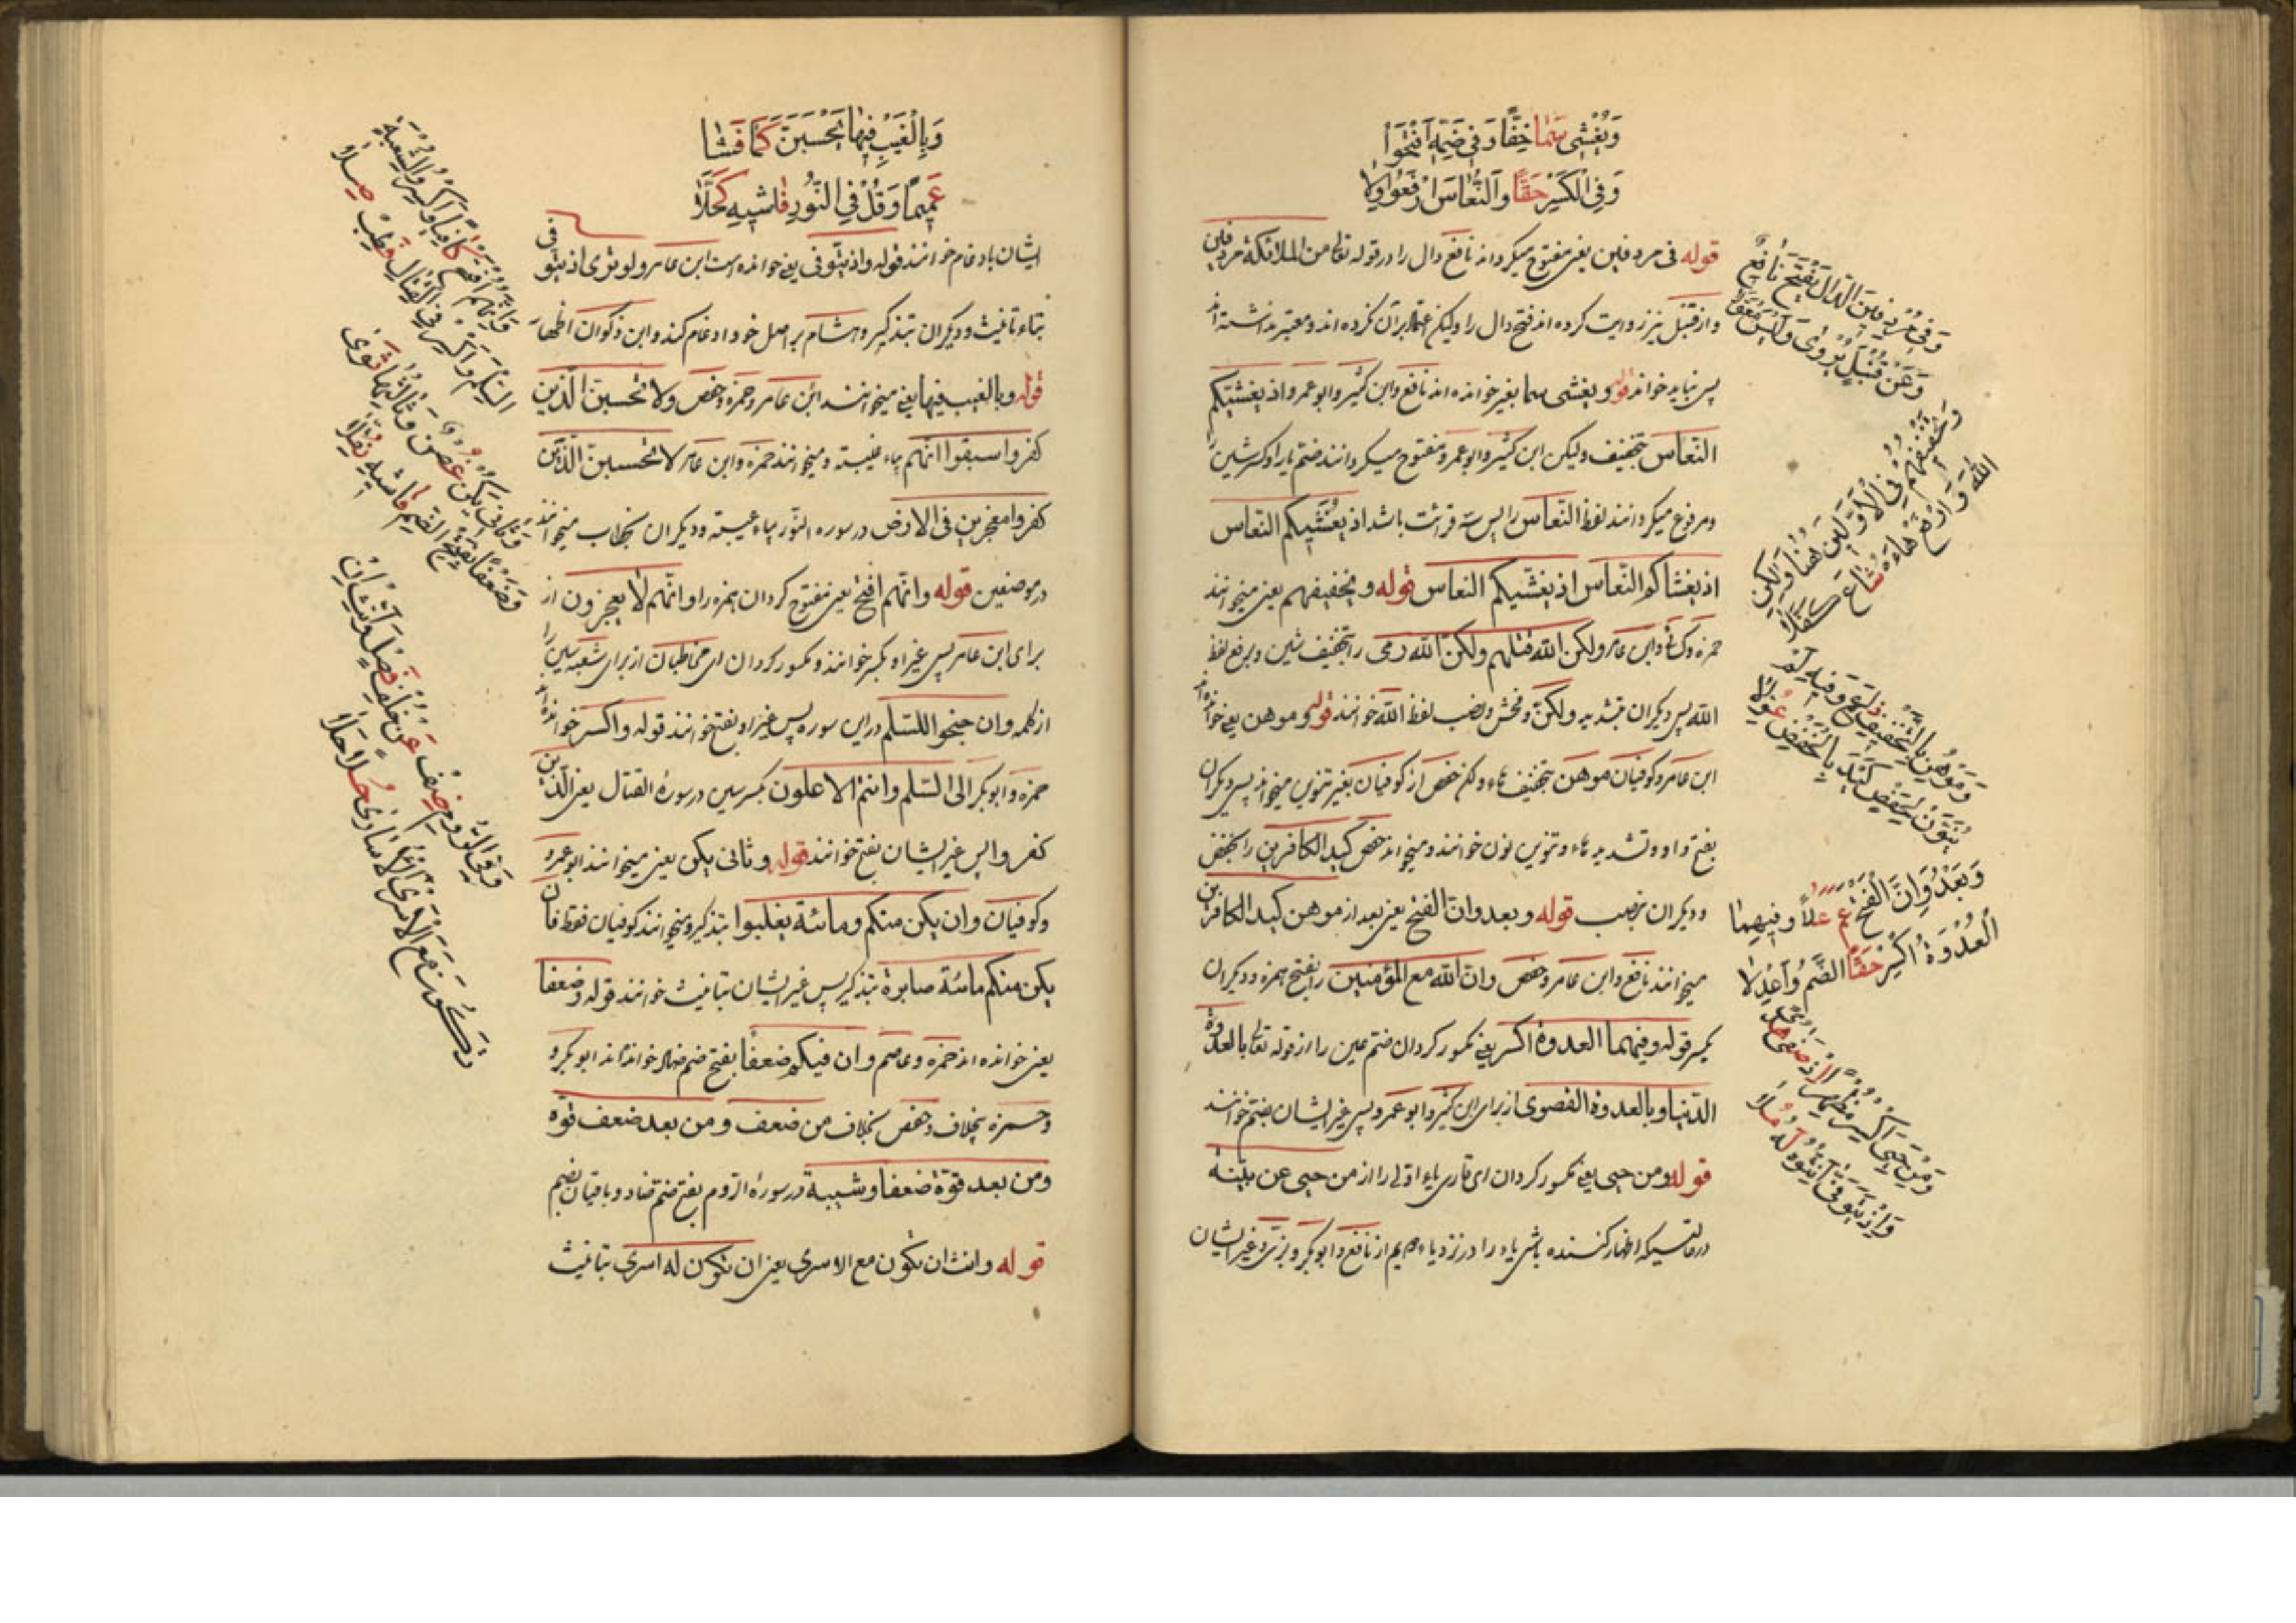 وَيُغْشِي سَمَا خِفًّا وَفِي ضَمِّهِ افْتَحُوا
وَفِي الْكَسْرِ حَقًّا وَالنُّعَاسَ ارْفَعُوا وِلَا
قوله فی مردفین یعنی مفتوح میکرداند نافع دال را در قوله تعالی من الملائکة مردفین
و از قنبل نیز روایت کرده اند فتح دال را ولیکن اعتماد بر آن نکرده اند و معتبر نداشته اند
پس نباید خواند قوله ویغشی سما یعنی خوانده اند نافع وابن کثیر وابو عمرو اذ یغشیکم
النعاس بتخفیف ولیکن ابن کثیر وابو عمرو مفتوح میکردانند ضم یا را وکسر شین را
ومرفوع میکردانند لفظ النعاس را پس سه قرائت باشد اذ یغشیکم النعاس
اذ یغشاکم النعاس اذ یغشیکم النعاس قوله وتخفیفهم یعنی میخوانند
حمزه وکسائی وابن عامر ولکن الله قتلهم ولکن الله رمی را بتخفیف وبرفع لفظ
الله پس دیکران بتشدید ولکن و ونصب لفظ الله خوانند قوله وموهن یعنی خوانده اند
ابن عامر وکوفیان موهن بتخفیف هاء ولکن حفص از کوفیان بغیر تنوین میخواند پس دیکران
بفتح واو وتشدید هاء وتنوین نون خوانند ومیخواند حفص کید الکافرین را بخفض
ودیکران بنصب قوله وبعد وان الفتح یعنی بعد از موهن کید الکافرین
میخوانند نافع وابن عامر وحفص وان الله مع المؤمنین را بفتح همزه ودیکران
بکسر قوله وفیهما العدوة اکسر یعنی مکسور کردان ضم عین را از قوله تعالی بالعدوة
الدنیا وبالعدوة القصوی از برای ابن کثیر وابو عمرو پس غیر ایشان بضم خوانند
قوله ومن حیی یعنی مکسور کردان ای قاری یاء اولی را از من حیی عن بینة
در حالتیکه اظهار کننده باشی یاء را در نزد یاء از نافع وابو بکر وبزی وغیر ایشان
وَفِي مُرْدِفِينَ الدَّالَ يَفْتَحُ نَافِعٌ
وَعَنْ قُنْبُلٍ يُرْوَى وَلَيْسَ مُعَوَّلَا
وَتَخْفِيفُهُمْ فِي الْأَوَّلِينَ هُنَا وَلَكِنِ
اللَّهُ وَارْفَعْ هَاءَهُ شَاعَ كُفَّلَا
وَمُوهِنُ بِالتَّخْفِيفِ ذَاعَ وَفِيهِ لَمْ
يُنَوَّنْ لِحَفْصٍ كَيْدَ بِالْخَفْضِ عَوَّلَا
وَبَعْدُ وَإِنَّ الْفَتْحَ عَمَّ عُلًا وَفِيهِمَا
الْعُدْوَةُ اكْسِرْ حَقًّا الضَّمَّ وَاعْدِلَا
وَمَنْ حَيِيَ اكْسِرْ مُظْهِرًا إِذْ صَفَا هُدًى
وَإِذْ يَتَوَفَّى أَنِّثُوهُ لَهُ مُلَا
وَبِالْغَيْبِ فِيهَا تَحْسَبَنَّ كَمَا فَشَا
عَمِيمًا وَقُلْ فِي النُّورِ فَاشِيهِ كَحَّلَا
ایشان بادغام خوانند قوله واذ یتوفی یعنی خوانده است ابن عامر ولو تری اذ یتوفی
بتاء تانیث ودیکران بتذکیر وهشام بر اصل خود ادغام کند وابن ذکوان اظهار
قوله وبالغیب فیها یعنی میخوانند ابن عامر وحمزه وحفص ولا تحسبن الذین
کفروا سبقوا انهم بیاء غیبة ومیخوانند حمزه وابن عامر لا تحسبن الذین
کفروا معجزین فی الارض در سوره النور بیاء غیبة ودیکران بخطاب میخوانند
در موضعین قوله وانهم افتح یعنی مفتوح کردان همزه را وانهم لا یعجزون از
برای ابن عامر پس غیر او بکسر خوانند ومکسور کردان ای مخاطبان از برای شعبه سین را
از کلمه وان جنحوا للسلم در این سوره پس غیر او بفتح خوانند قوله واکسر خوانده اند
حمزه وابو بکر الی السلم وانتم الاعلون بکسر سین در سورۀ القتال یعنی الذین
کفروا پس غیر ایشان بفتح خوانند قوله وثانی یکن یعنی میخوانند ابو عمرو
وکوفیان وان یکن منکم ومائة یغلبوا بتذکیر ومیخوانند کوفیان فقط فان
یکن منکم مائة صابرة بتذکیر پس غیر ایشان بتانیث خوانند قوله وضعفا
یعنی خوانده اند حمزه وعاصم وان فیکم ضعفا بفتح ضم ضاد خوانده اند ابو بکر و
وحمزه بخلاف وحفص بخلاف من ضعف ومن بعد ضعف قوة
ومن بعد قوة ضعفا وشیبة در سورۀ الروم بفتح ضم ضاد وباقیان بضم
قوله وانث ان تکون مع الاسری یعنی ان تکون له اسری بتانیث
وَإِنَّهُمُ افْتَحْ كَافِيًا وَاكْسِرُوا لِشُعْبَةَ
السَّلْمِ وَاكْسِرْ فِي الْقِتَالِ فَطِبْ صِلَا
وَثَانِي يَكُنْ غُصْنٌ وَثَالِثُهَا ثَوَى
وَضَعْفًا بِفَتْحِ الضَّمِّ فَاشِيهِ نُفِّلَا
وَفِي الرُّومِ صِفْ عَنْ خُلْفِ فَصْلٍ وَأَنِّثْ أَنْ
تَكُونَ مَعَ الْأَسْرَى الْأُسَارَى حُلًا حَلَا